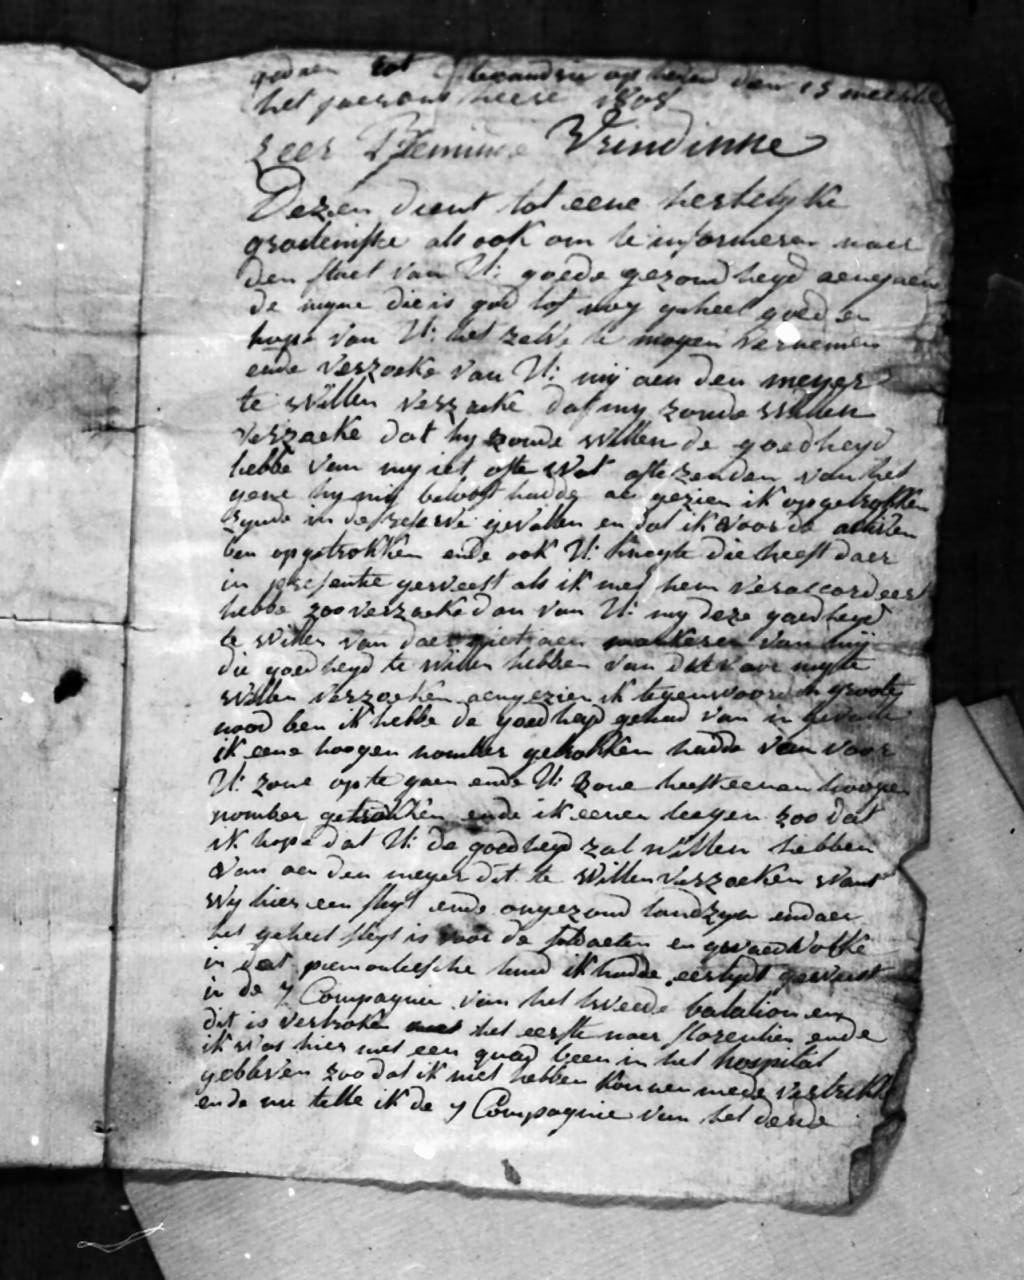 gedaen tot Alexandrie op heden den 15 meert
het jaer ons heere 1808
Zeer Beminde Vrindinne
Dezen dient tot eene hertelyke
groetenisse als ook om te informeren naer
den staet van U: goede gezondheyd aengaen
de myne die is god lof nog geheel goed en
hope van U: het zelve te mogen vernemen
ende verzoeke van U: mij aen den meyer
te willen verzoeke dat my zoude willen
verzoeke dat hy zoude willen de goedheyd
hebbe van my iet ofte wat ofte zenden van het
gene hy my belooft hadde aengezien ik opgetrokken
zynde in de reserve gevallen en dat ik voor de activen
ben opgetrokken ende ook U: knegte die heeft daer
in presentie geweest als ik met hem veraccordeert
hebbe zoo verzoeke dan van U: my deze goedheyd
te willen van daer niet aen mankeren van mij
die goedheyd te willen hebben van dit voor my te
willen verzoeken aengezien ik tegenwoordig in grooten
nood ben ik hebbe de goedheyd gehad van in gevalle
ik eene hoogen nomber getrokken hadde van voor
U: zone op te gaen ende U: zone heeft eenen hoogen
nomber getrokken ende ik eenen leegen zoo dat
ik hope dat U: de goedheyd zal willen hebben
van aen den meyer dit te willen verzoeken want
wy hier een slegt ende ongezond land zyn endaer
het geheel slegt is voor de soldaeten en
in dat piemonteesche land ik hadde eerlyst geweest
in de 7 Compagnie van het tweede batalion en
dit is vertroken met het eerste naer florentien ende
ik was hier met een quaed been in het hospital
gebleven zoo dat ik niet hebben konnen mede vertrekke
ende nu telle ik de 7 Compagnie van het derde